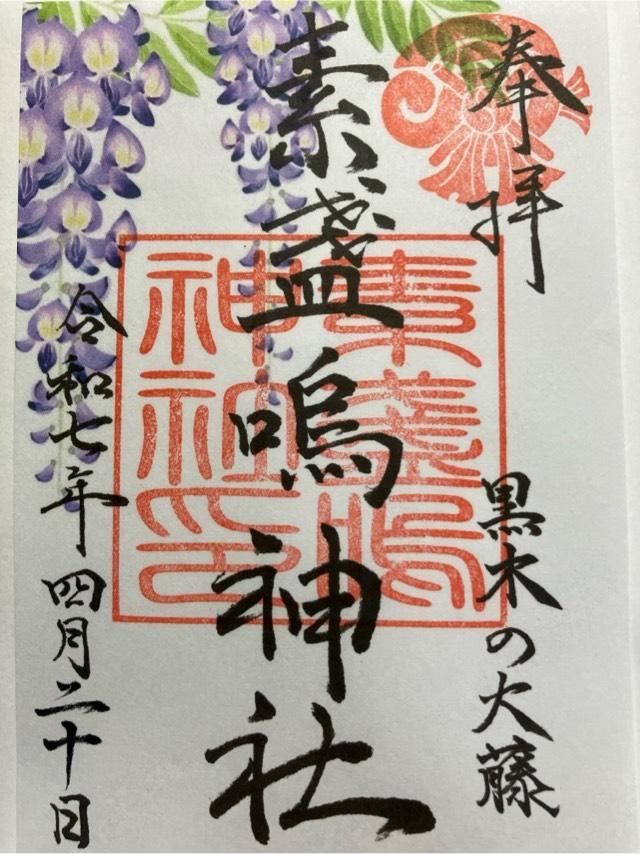 奉拝
黒木の大藤
素盞嗚神社
素盞嗚
神社印
令和七年四月二十日